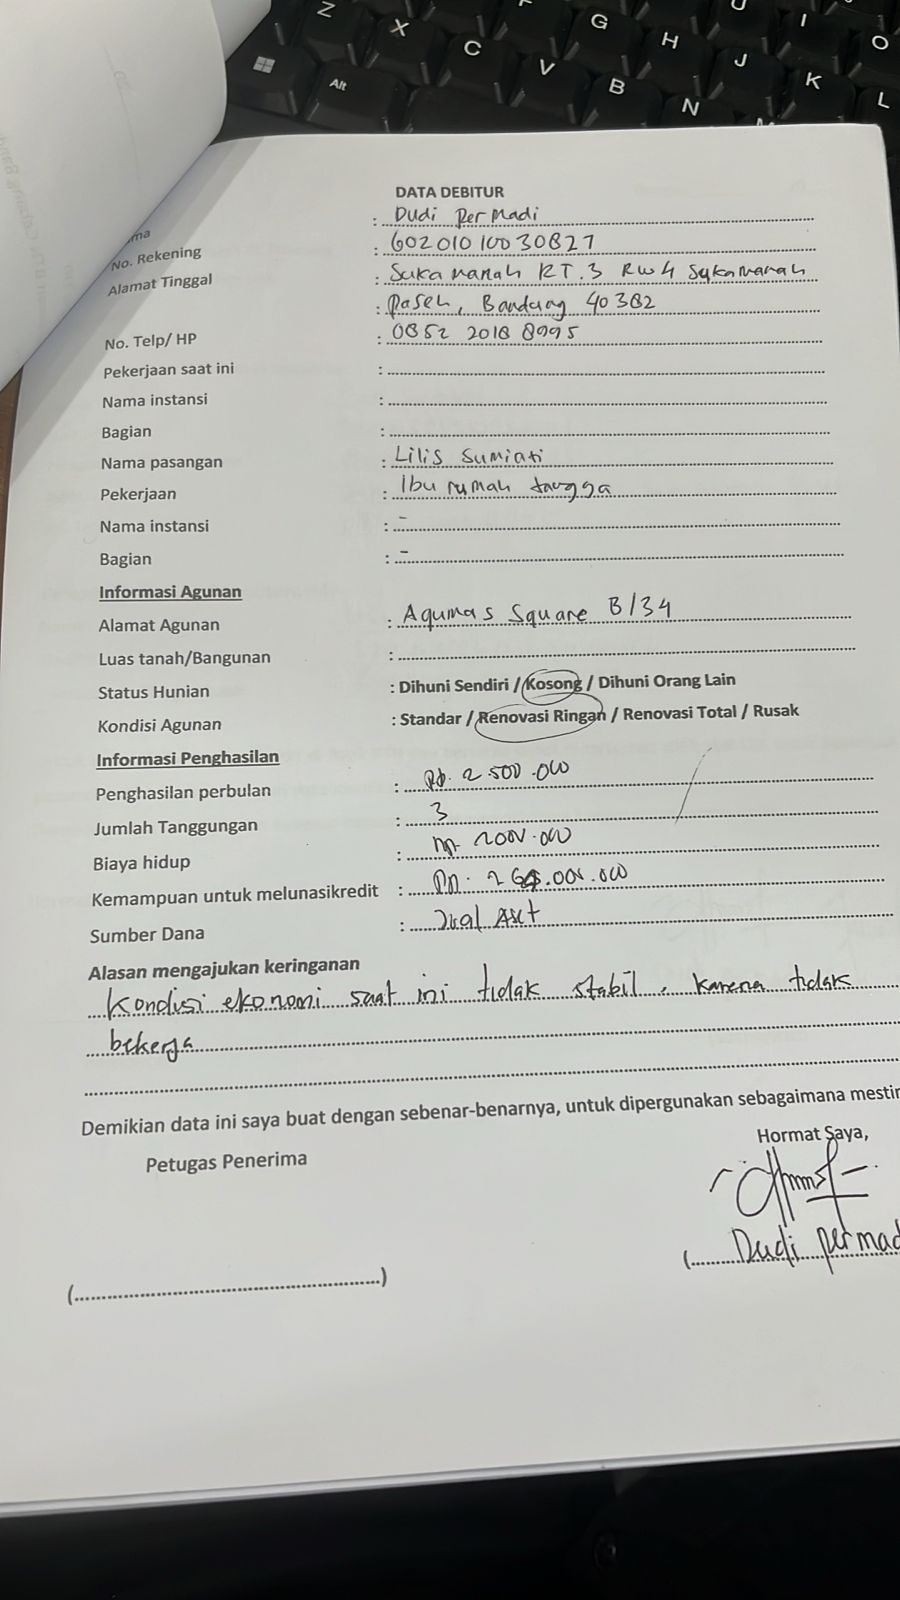 DATA DEBITUR
ma : Dudi Permadi
No. Rekening : 60201010030827
Alamat Tinggal : Sukamanah RT.3 RW4 Sukamanah
: Paseh, Bandung 40382
No. Telp/ HP : 0852 2018 8995
Pekerjaan saat ini :
Nama instansi :
Bagian :
Nama pasangan : Lilis Sumiati
Pekerjaan : Ibu rumah tangga
Nama instansi : -
Bagian : -
Informasi Agunan
Alamat Agunan : Agumas Square B/34
Luas tanah/Bangunan :
Status Hunian : Dihuni Sendiri / Kosong / Dihuni Orang Lain
Kondisi Agunan : Standar / Renovasi Ringan / Renovasi Total / Rusak
Informasi Penghasilan
Penghasilan perbulan : Rp. 2 500.000
Jumlah Tanggungan : 3
Biaya hidup : Rp 2000.000
Kemampuan untuk melunasikredit : Rp. .000.000
Sumber Dana : Jual Aset
Alasan mengajukan keringanan
Kondisi ekonomi saat ini tidak stabil, karena tidak
bekerja
Demikian data ini saya buat dengan sebenar-benarnya, untuk dipergunakan sebagaimana mestin
Petugas Penerima Hormat Saya,
(....................) (....... Dudi permad
Z X C V B N G H J K L U I O Alt